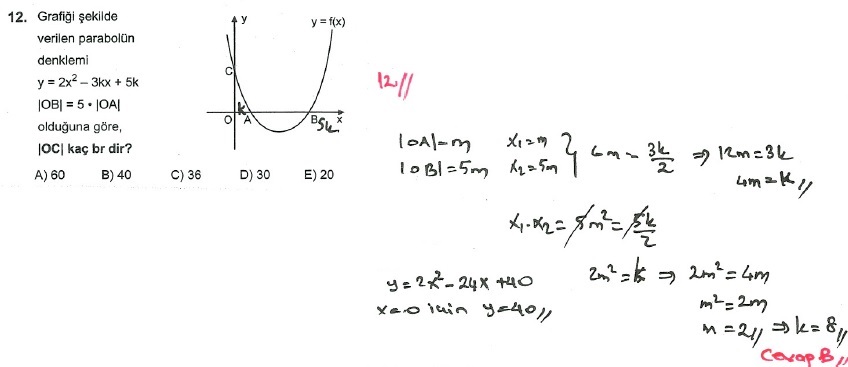 12. Grafiği şekilde
verilen parabolün
denklemi
y = 2x² – 3kx + 5k
|OB| = 5 • |OA|
olduğuna göre,
|OC| kaç br dir?
A) 60 B) 40 C) 36 D) 30 E) 20
y y = f(x)
C
k
O A B x
5k
12//
|OA|=m x₁=m
|OB|=5m x₂=5m } 6m = 3k/2 ⇒ 12m=3k
4m=k//
x₁.x₂ = 5m² = 5k/2
2m²=k ⇒ 2m²=4m
m²=2m
m=2// ⇒ k=8//
y=2x²-24x+40
x=0 için y=40//
Cevap B//